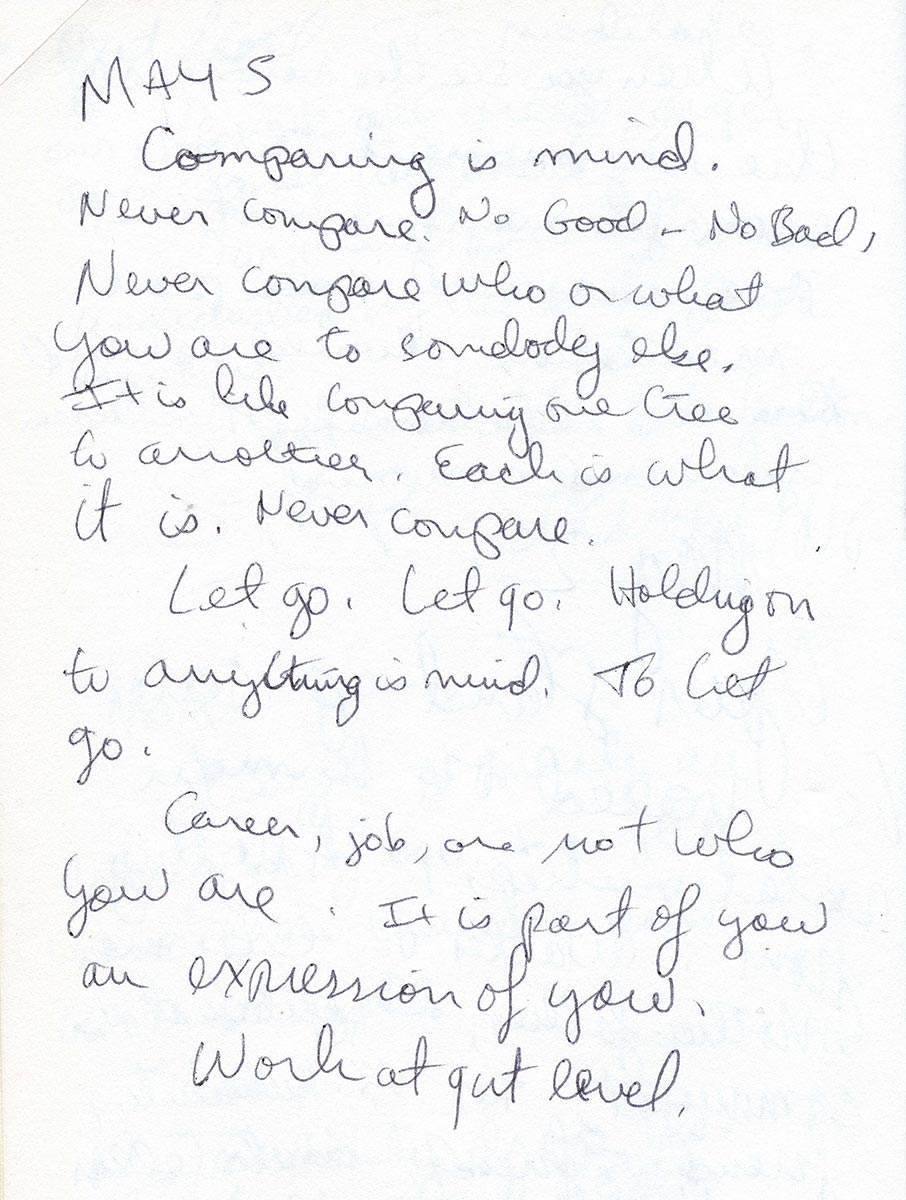 MAY 5
Comparing is mind.
Never compare. No Good - No Bad,
Never compare who or what
you are to somdody else.
It is like comparing one tree
to another. Each is what
it is. Never compare.
Let go. Let go. Holding on
to anything is mind. To let
go.
Career, job, are not who
you are. It is part of you
an expression of you.
Work at gut level.